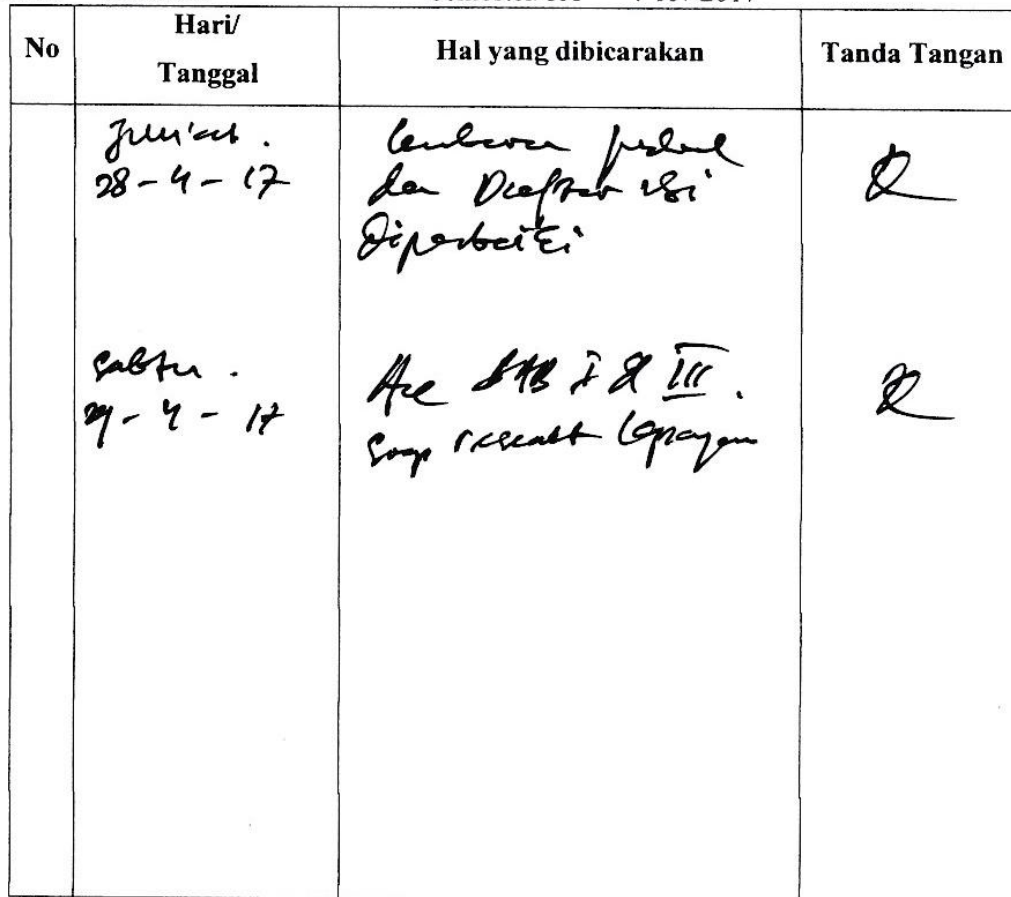 No
Hari/
Tanggal
Hal yang dibicarakan
Tanda Tangan
Jum'at.
28 - 4 - 17
Lembaran judul
dan Daftar isi
diperbaiki
Sabtu.
29 - 4 - 17
Acc BAB I & III.
Siap riset lapangan